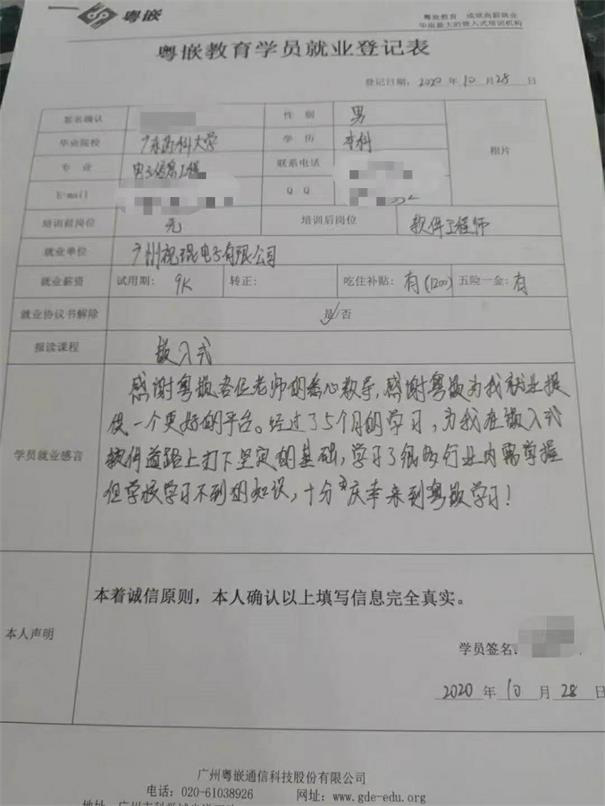 粤嵌
粤嵌教育 成就高薪就业
华南最大的嵌入式培训机构
粤嵌教育学员就业登记表
登记日期：2020 年 10 月 28 日
签名确认 性 别 男
毕业院校 广东药科大学 学 历 本科 相片
专 业 电子信息工程 联系电话
E-mail Q Q
培训前岗位 无 培训后岗位 软件工程师
就业单位 广州视琨电子有限公司
就业薪资 试用期： 9K 转正： 吃住补贴： 有(1200) 五险一金： 有
就业协议书解除 是/否
报读课程 嵌入式
感谢粤嵌各位老师的悉心教导，感谢粤嵌为我就业提
供一个更好的平台。经过了5个月的学习，为我在嵌入式
学员就业感言 软件道路上打下坚定的基础，学习了很多行业内需掌握
但学校学习不到的知识，十分庆幸来到粤嵌学习！
本着诚信原则，本人确认以上填写信息完全真实。
本人声明
学员签名
2020 年 10 月 28 日
广州粤嵌通信科技股份有限公司
电话：020-61038926 网址：www.gde-edu.org